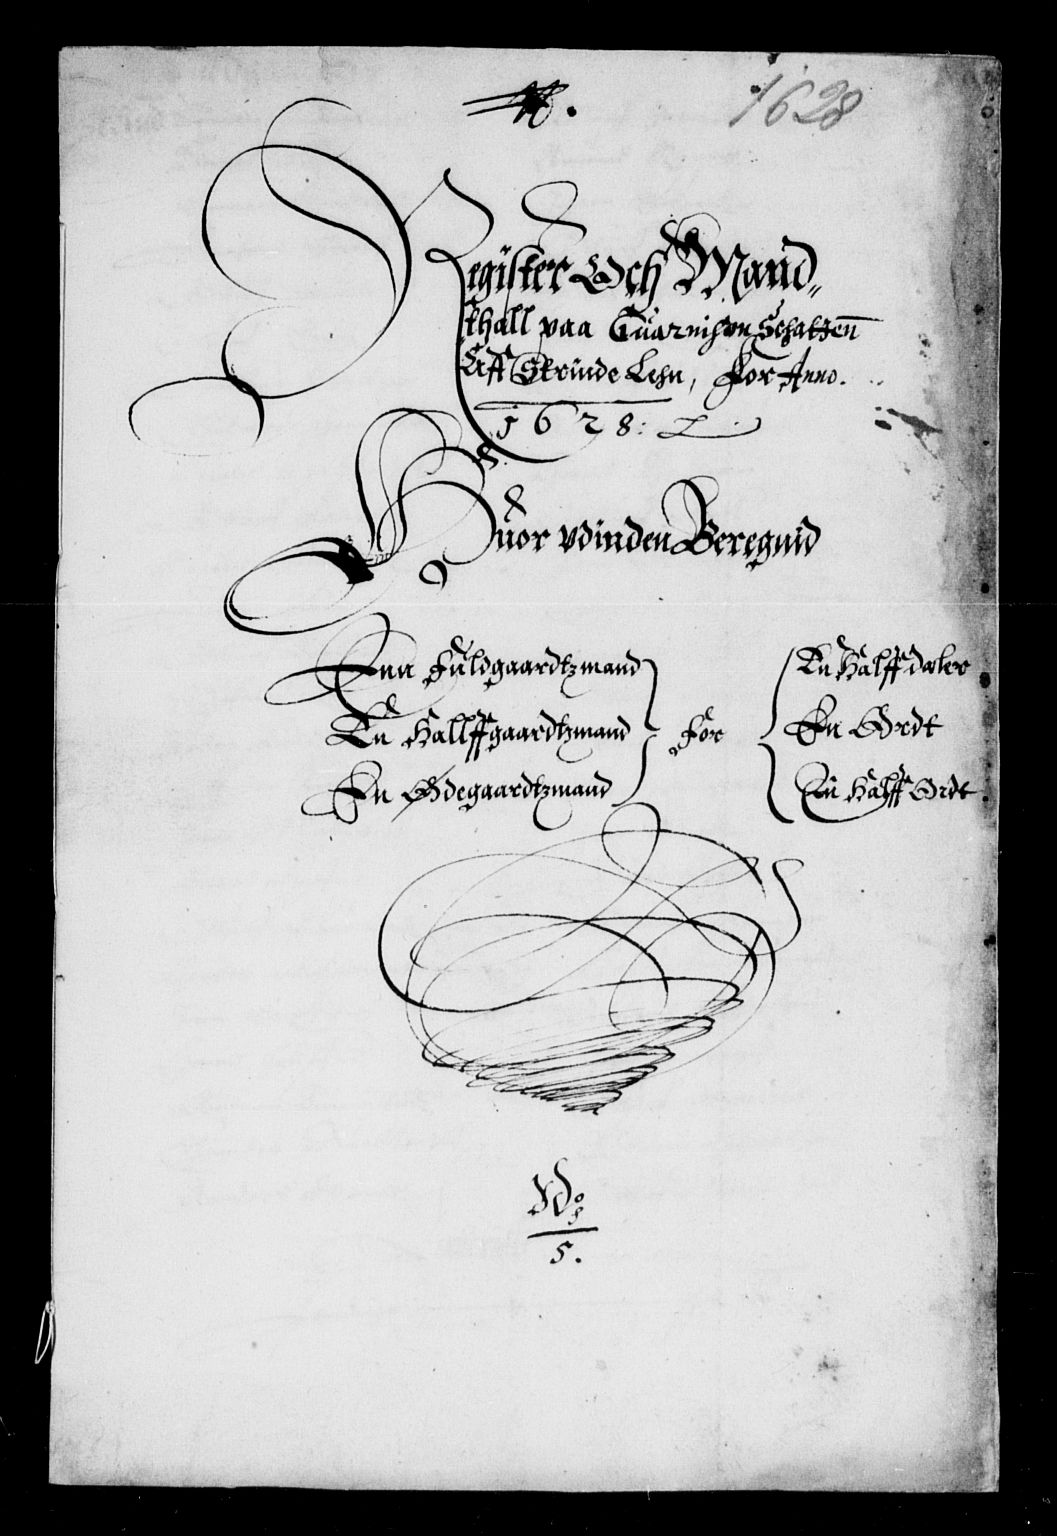 1628
Register Och Mand„
thall paa Guarnison Schatzen̅
Aff Skriude Lehn, For Anno.
1628:
Huor vdinden Beregnid
Enn Fuldgaardtzmand
En Hallffgaardtzmand
En Ødegaardtzmand
For
En Halff daler
En Ordt
En Halff Ordt
No
5.